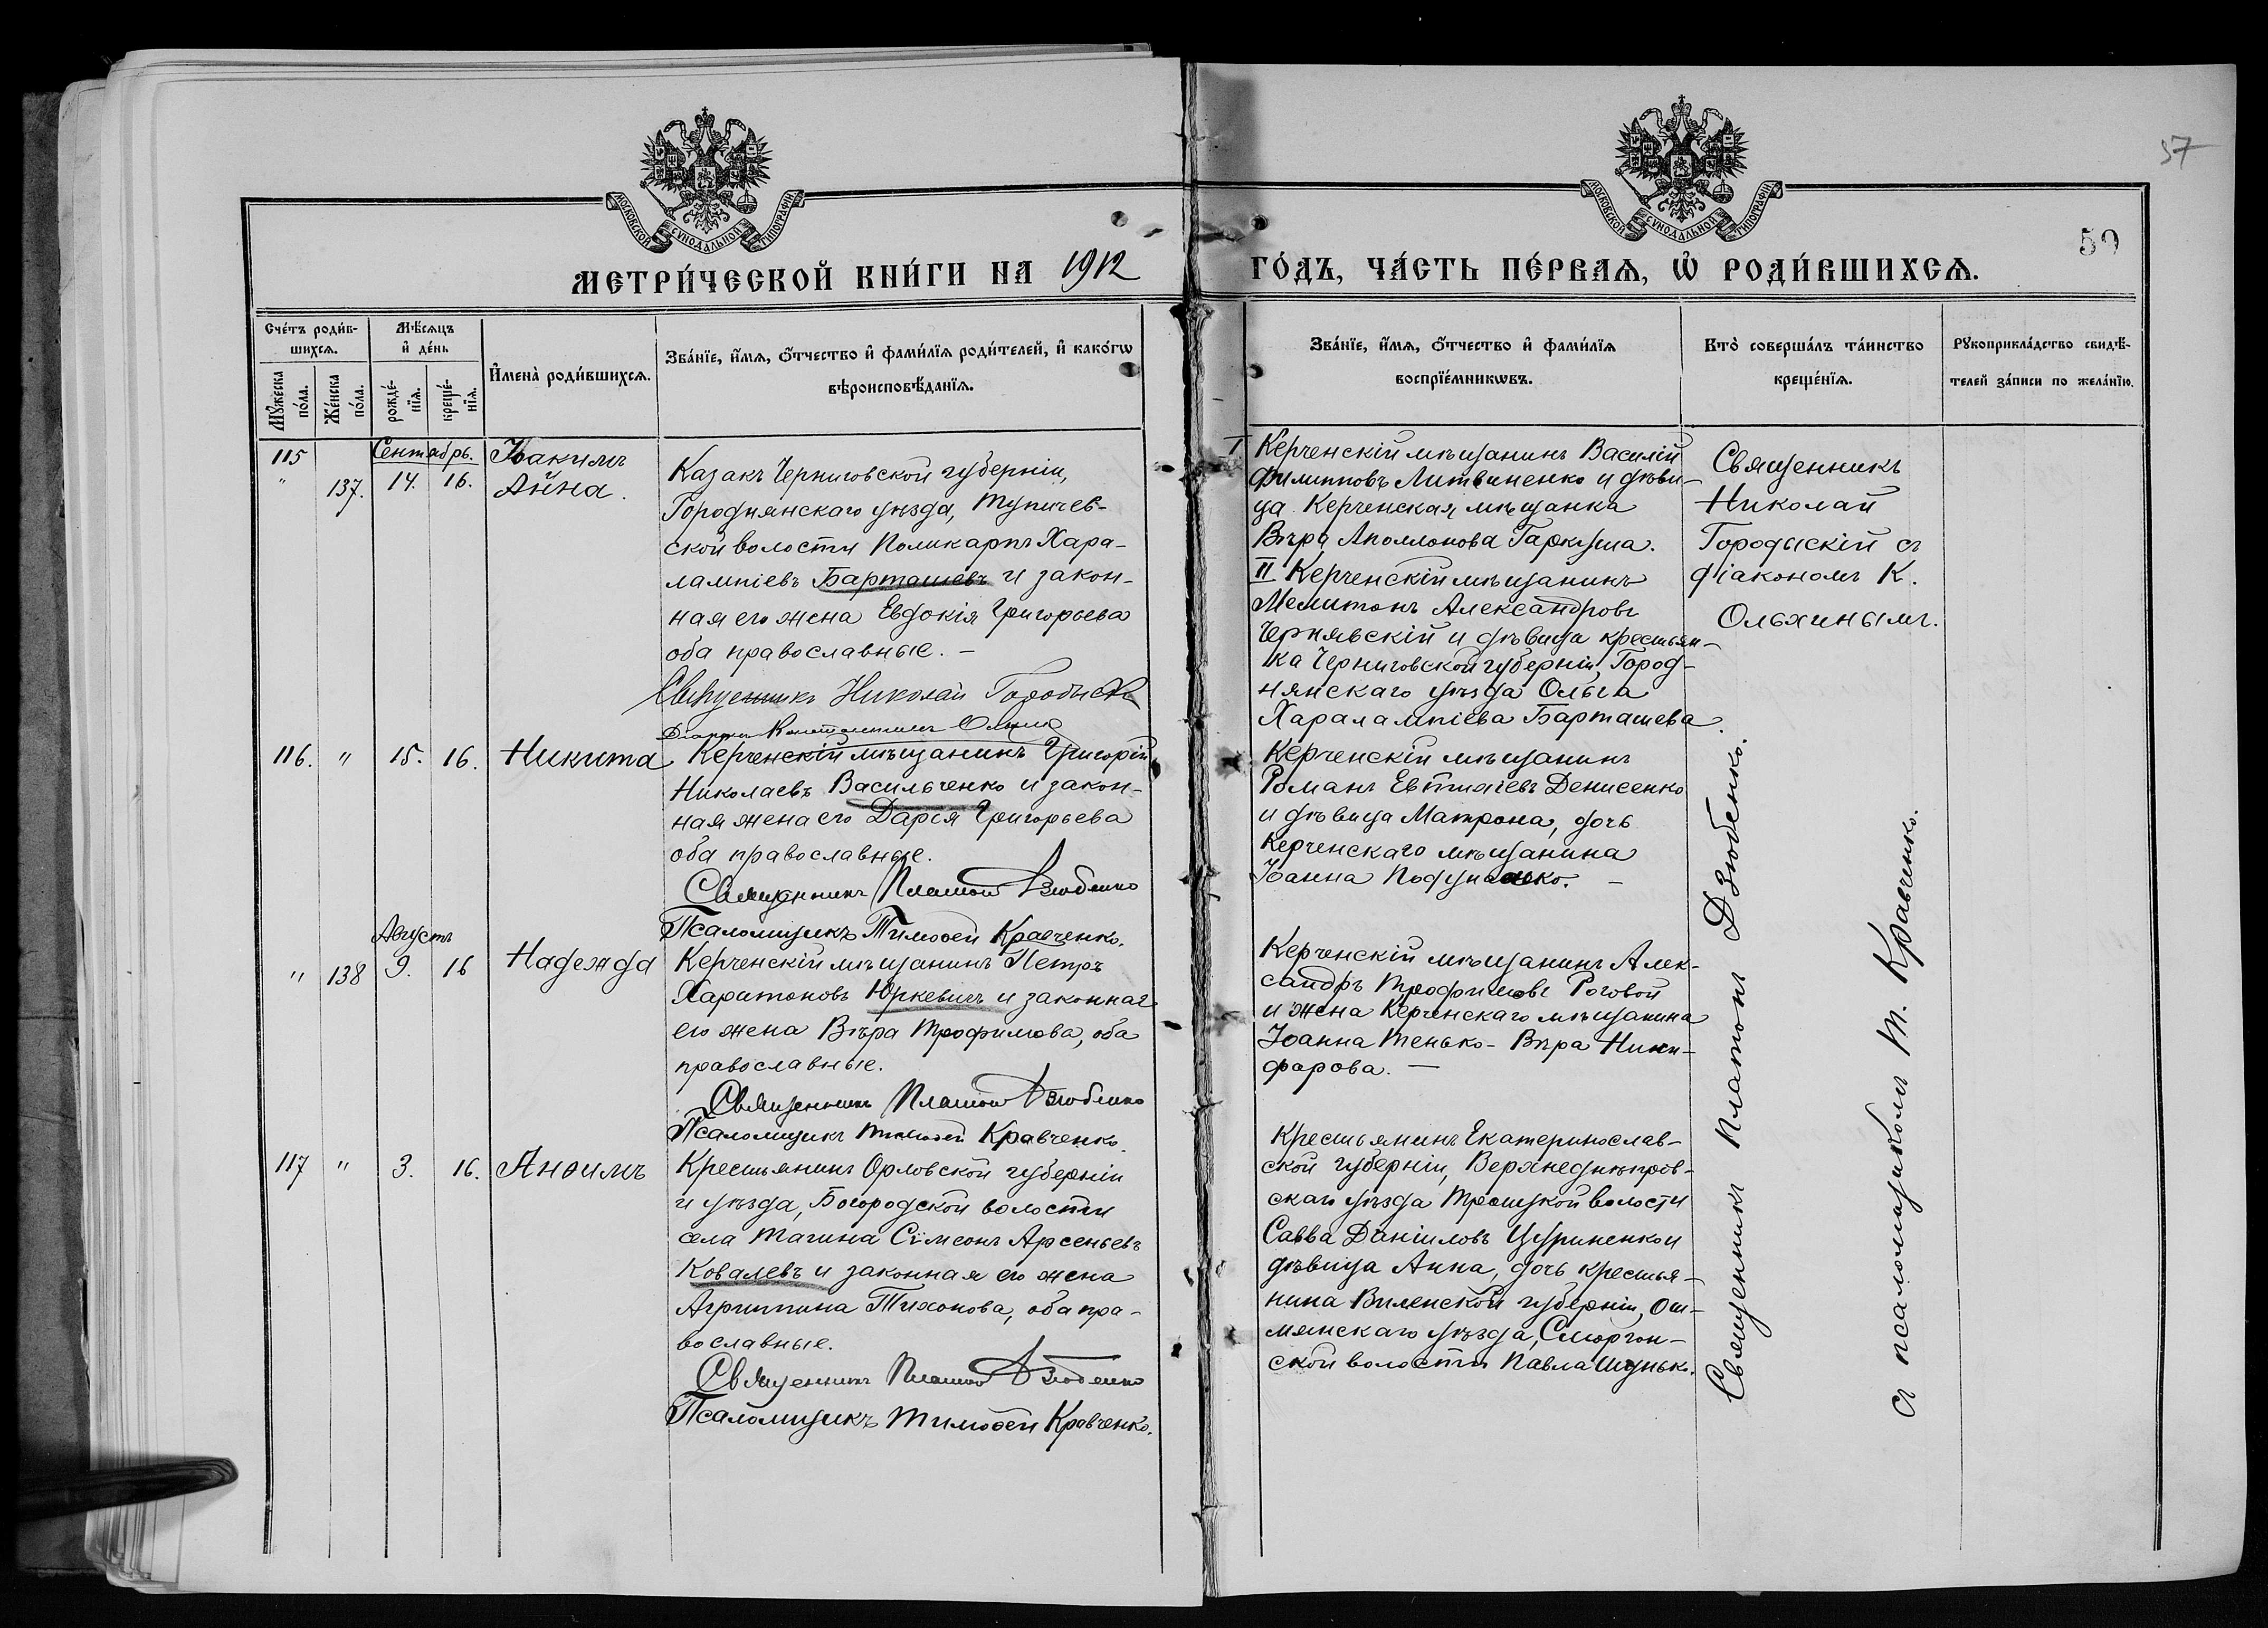 57
МОСКОВСКОЙ СѴНОДАЛЬНОЙ ТИПОГРАФІИ
МОСКОВСКОЙ СѴНОДАЛЬНОЙ ТИПОГРАФІИ
50
МЕТРИ́ЧЕСКОЙ КНИ́ГИ НА 1912
ГО́ДЪ, ЧА́СТЬ ПЕ́РВАѦ, Ѡ҆ РОДИ́ВШИХСѦ.
Сче́тъ роди́в-
шихсѧ.
Мѣ́сѧцъ
и҆ де́нь
Мꙋ́жеска
по́ла.
Же́нска
по́ла.
рожде́-
нїѧ.
креще́-
нїѧ.
И҆мена̀ роди́вшихсѧ.
Зва́нїе, и҆́мѧ, ѻ҆́тчество и҆ фами́лїѧ роди́телей, и҆ како́гѡ
вѣроисповѣ́данїѧ.
Зва́нїе, и҆́мѧ, ѻ҆́тчество и҆ фами́лїѧ
воспрїе́мникѡвъ.
Кто̀ соверша́лъ та́инство
креще́нїѧ.
Рꙋкоприкла́дство свидѣ́-
телей за́писи по жела́нїю.
115
Сентябрь.
Іоакимъ
" 137. 14. 16. Анна.
Казакъ Черниговской губерніи,
Городнянскаго уѣзда, Тупичев-
ской волости Поликарпъ Хара-
лампіевъ Барташевъ и закон-
ная его жена Евдокія Григорьева
оба православные. —
Священникъ Николай Городыскій
I Керченскій мѣщанинъ Василій
Филипповъ Литвиненко и дѣви-
ца Керченская мѣщанка
Вѣра Аполлонова Гаркуша.
II Керченскій мѣщанинъ
Мелитонъ Александровъ
Чернявскій и дѣвица крестьян-
ка Черниговской губерніи, Город-
нянскаго уѣзда Ольга
Харалампіева Барташева.
Священникъ
Николай
Городыскій съ
діакономъ К.
Ольхинымъ.
116. " 15. 16. Никита
Керченскій мѣщанинъ Григорій
Николаевъ Васильченко и закон-
ная жена его Дарія Григорьева
оба православные.
Священникъ Платонъ Дзюбенко
Псаломщикъ Тимоѳей Кравченко.
Керченскій мѣщанинъ
Романъ Евтихіевъ Денисенко
и дѣвица Матрона, дочь
Керченскаго мѣщанина
Іоанна
Августъ
" 138 9. 16 Надежда
Керченскій мѣщанинъ Петръ
Харитоновъ Юркевичъ и законная
его жена Вѣра Трофимова, оба
православные.
Священникъ Платонъ Дзюбенко
Псаломщикъ Тимоѳей Кравченко.
Керченскій мѣщанинъ Алек-
сандръ Трофимовъ Роговой
и жена Керченскаго мѣщанина
Іоанна Тенько - Вѣра Ники-
форова. —
117 " 3. 16. Анѳимъ
Крестьянинъ Орловской губерніи
и уѣзда, Богородской волости
села Тагина Сѵмеонъ Арсеньевъ
Ковалевъ и законная его жена
Агриппина Тихонова, оба пра-
вославные.
Священникъ Платонъ Дзюбенко
Псаломщикъ Тимоѳей Кравченко.
Крестьянинъ Екатеринослав-
ской губерніи, Верхнеднѣпров-
скаго уѣзда Троицкой волости
Савва Даніиловъ Цуриненко и
дѣвица Анна, дочь крестья-
нина Виленской губерніи, Ош-
мянскаго уѣзда, Сморгон-
ской волости Павла Шунько.
Священникъ Платонъ Дзюбенко.
съ псаломщикомъ Т. Кравченко.